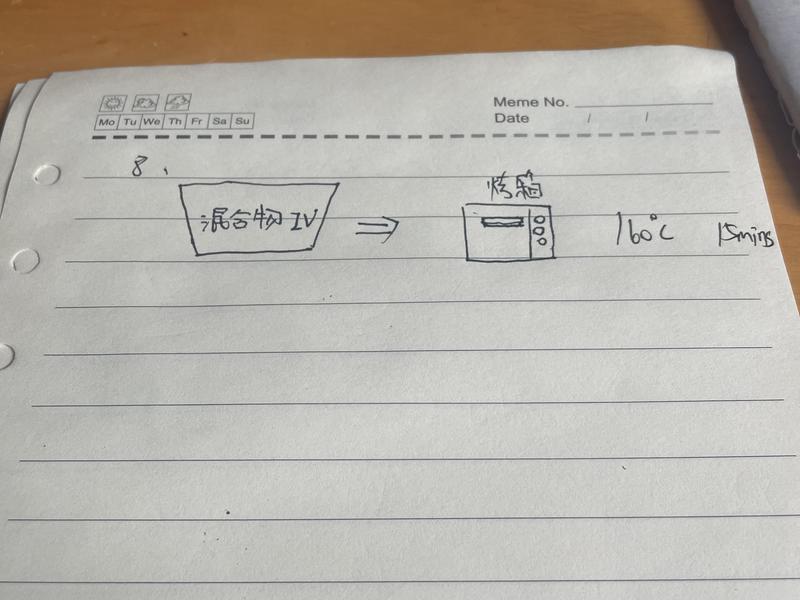 Meme No.
Mo Tu We Th Fr Sa Su
Date / /
8、
烤箱
混合物 IV ⇒ 160°C 15mins